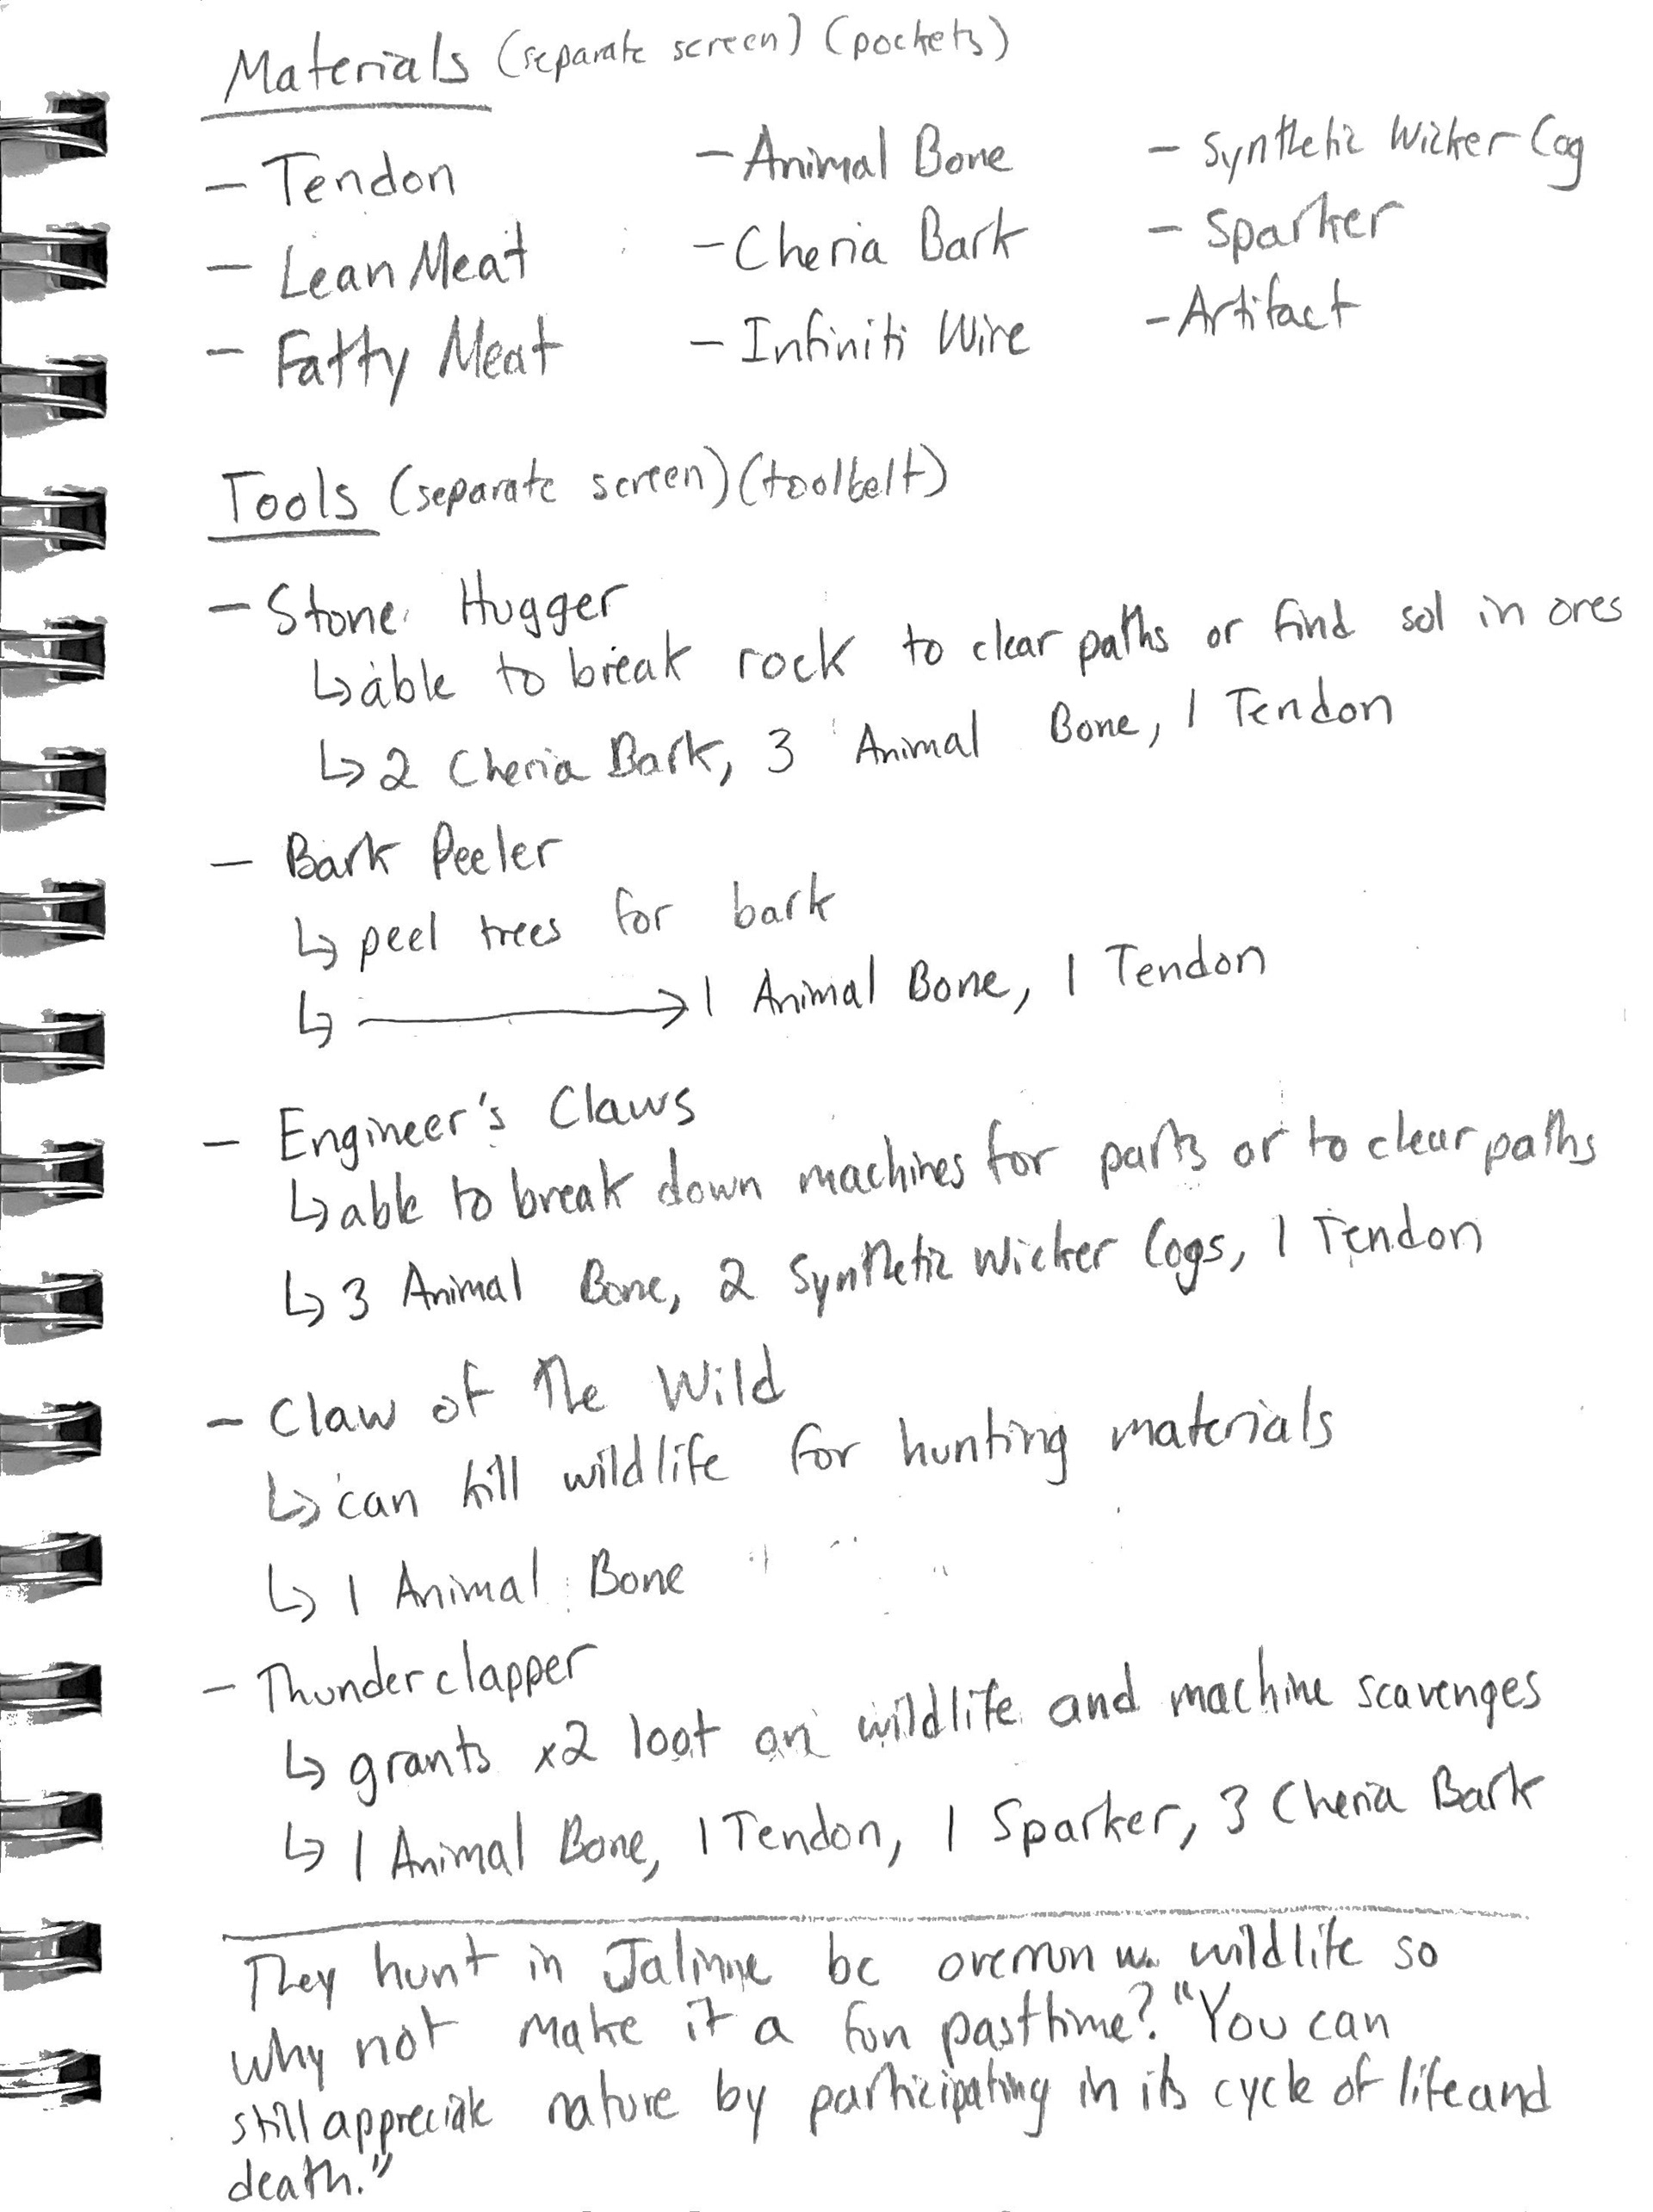 Materials (separate screen) (pockets)
- Tendon
- Lean Meat
- Fatty Meat
- Animal Bone
- Cheria Bark
- Infiniti Wire
- Synthetic Wicker Cog
- Sparker
- Artifact
Tools (separate screen) (toolbelt)
- Stone Hugger
↳ able to break rock to clear paths or find sol in ores
↳ 2 Cheria Bark, 3 Animal Bone, 1 Tendon
- Bark Peeler
↳ peel trees for bark
↳ → 1 Animal Bone, 1 Tendon
- Engineer's Claws
↳ able to break down machines for parts or to clear paths
↳ 3 Animal Bone, 2 Synthetic Wicker Cogs, 1 Tendon
- Claw of the Wild
↳ can kill wildlife for hunting materials
↳ 1 Animal Bone
- Thunderclapper
↳ grants x2 loot on wildlife and machine scavenges
↳ 1 Animal Bone, 1 Tendon, 1 Sparker, 3 Cheria Bark
They hunt in bc overrun w wildlife so
why not make it a fun pasttime? "You can
still appreciate nature by participating in its cycle of life and
death."